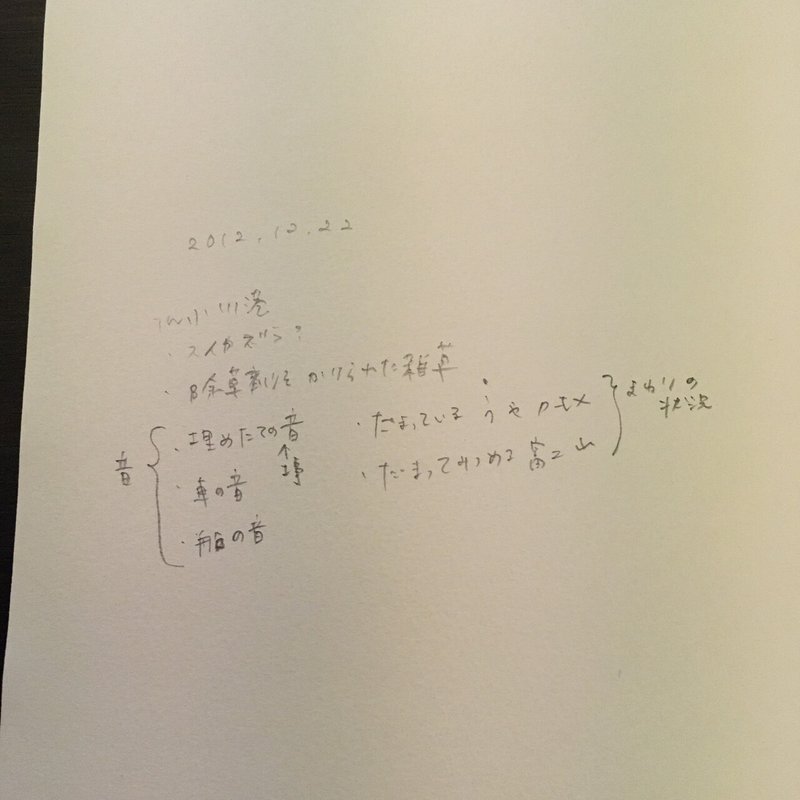 2012.12.22
小川港
・スイカズラ?
・除草剤をかけられた雑草
音
・埋めたての音
↑
・車の音
・船の音
・だまっている うやカモメ
・だまってみつめる富士山
まわりの
状況